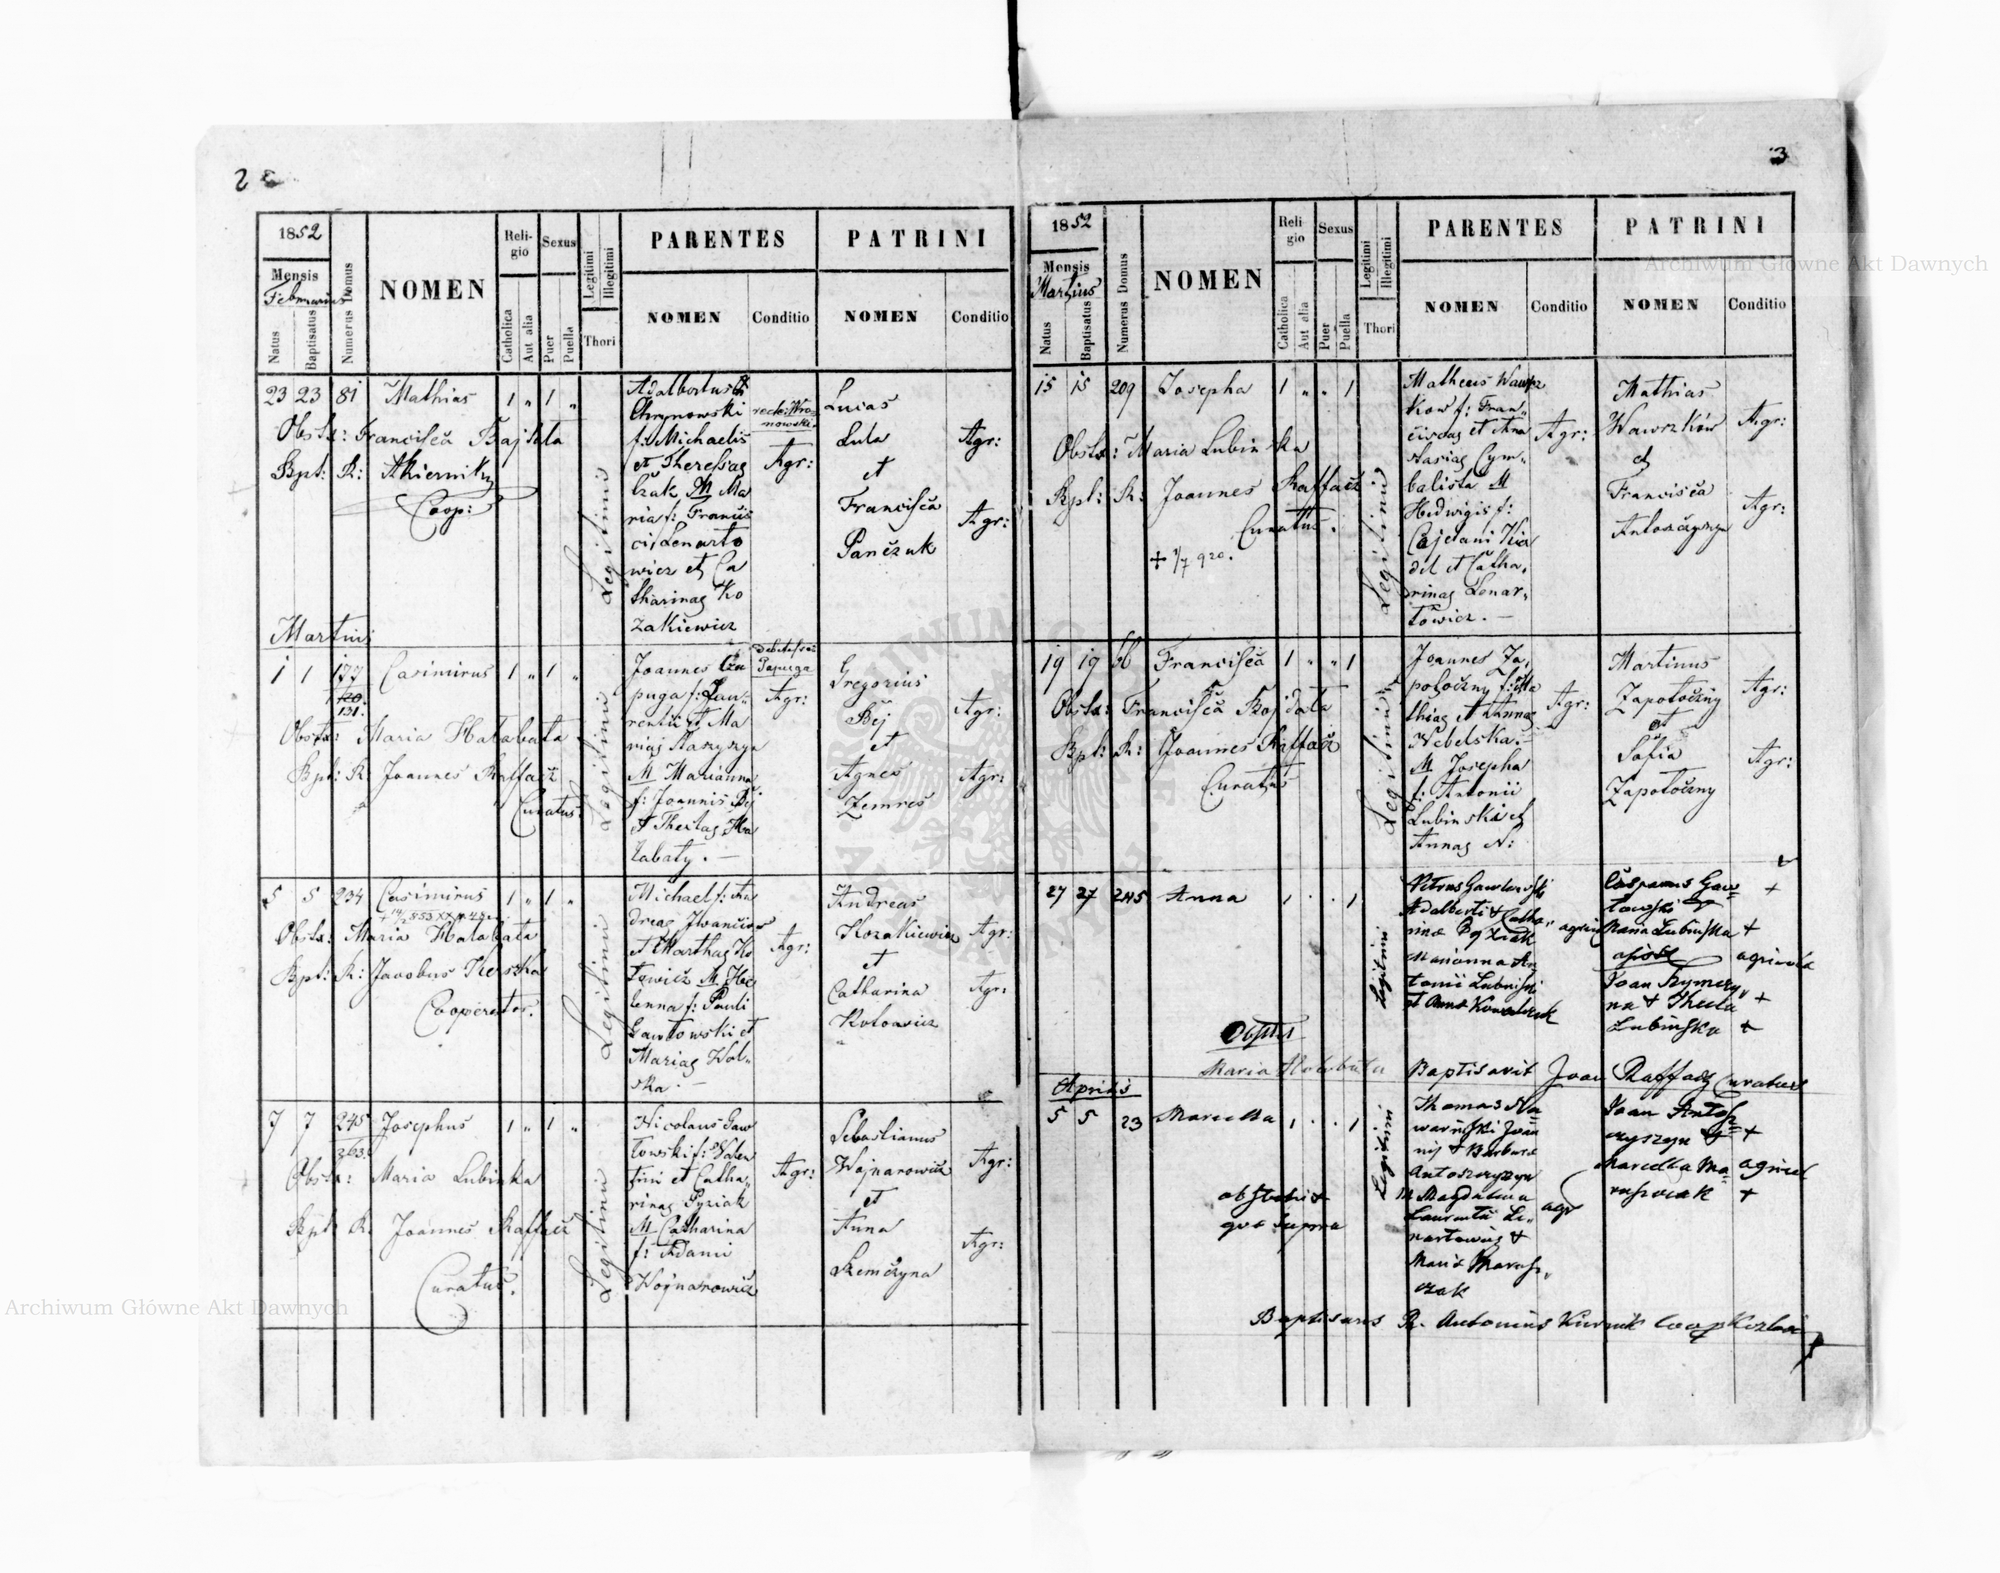 2
1852
Mensis
Februarius
Natus
Baptisatus
Numerus Domus
NOMEN
Reli-
gio
Catholica
Aut alia
Sexus
Puer
Puella
Legitimi
Illegitimi
Thori
PARENTES
NOMEN
Conditio
PATRINI
NOMEN
Conditio
23 23 81 Mathias 1 „ 1 „
Obstx: Francisca Bajdata
Bpt: R:
Coop:
Legitimi
Adalbertus
Chrynowski
f: Michaelis
et Theresiae
M Ma
ria f: Francis
ci Lenarto
wicz et Ca
tharinae Ko
zakiewicz
recte: Wro-
nowski
Agr:
Lucas
Lula
et
Francisca
Panczuk
Agr:
Agr:
Martius
1 1 177 Casimirus 1 „ 1 „
120
131.
Obstx: Maria Hatabata
Bpt: R: Joannes Raffacz
Curatus.
Legitimi
Joannes Czu
puga f: Lau-
rentii et Ma
riae
M Marianna
f: Joannis Bej
et Thereae Ha
tabaty. —
Papuga
Agr:
Gregorius
Bej
et
Agnes
Zemres
Agr:
Agr:
5 5 234 Casimirus 1 „ 1 „
Obstx: Maria Hatabata
Bpt: R: Jacobus
Cooperator.
Legitimi
Michael f: An
dreae Iwanciow
et Marthae Ko
towicz M He
lenna f: Pauli
Gawtowski et
Mariae Wol-
ska. —
Agr:
Andreas
Kozakiewicz
et
Catharina
Kotowicz
Agr:
Agr:
7 7 245 Josephus 1 „ 1 „
363.
Obstx: Maria Lubinka
Bpt: R. Joannes Raffacz
Curatus.
Legitimi
Nicolaus Gaw
towski f: Valen
tini et Catha-
rinae Pyziak
M Catharina
f: Adami
Wojnarowicz
Agr:
Sebastianus
Wojnarowicz
et
Anna
Szemczyna
Agr:
Agr:
3
1852
Mensis
Martius
Natus
Baptisatus
Numerus Domus
NOMEN
Reli-
gio
Catholica
Aut alia
Sexus
Puer
Puella
Legitimi
Illegitimi
Thori
PARENTES
NOMEN
Conditio
PATRINI
NOMEN
Conditio
15 15 209 Josepha 1 „ „ 1
Obstx: Maria Lubinska
Bpt: R: Joannes Raffacz
Curatus.
+ 1/7 920.
Legitimi
Matheus Wawrz
kow f: Fran-
cisci et Ana
stasiae Cym-
balista M
Hedwigis f:
Cajetani
et Catha,
rinae Lenar-
towicz. —
Agr:
Mathias
Wawrzków
et
Francisca
Antoszczyszyn
Agr:
Agr:
19 19 66 Francisca 1 „ „ 1
Obstx: Francisca Bojdata
Bpt: R: Joannes Raffacz
Curatus
Legitimi
Joannes Za,
potoczny f: Ma
thiae et Annae
Nebelska. —
M Josepha
f: Antonii
Lubinski et
Annae N:
Agr:
Martinus
Zapotoczny
et
Sofia
Zapotoczny
Agr:
Agr:
27 27 245 Anna 1 . . 1
Obsttx
Maria Hatabata
Legitimi
Petrus Gawtowski
Adalberti & Catha-
rinae Pyziak
Marianna An
tonii Lubinski
et Anna Kowalczuk
Casparus Gaw
towski
Maria Lubinska +
Joan Szymczy,
na & Thecla +
Lubinska +
Baptisavit Joan Raffacz Curatus
Aprilis
5 5 23 Marcella 1 . . 1
obstetrix
quae supra
Legitimi
Thomas Na
warinski Joan
nis & Barbara
Antoszczyszyn
M Magdalena
Laurentii Le-
nartowicz &
Maria Marusz,
czak
agr
Joan Antosz
czyszyn +
Marcella Ma
ruszczak +
Baptisans R. Antonius Kurnik Coop
Archiwum Główne Akt Dawnych
Archiwum Główne Akt Dawnych